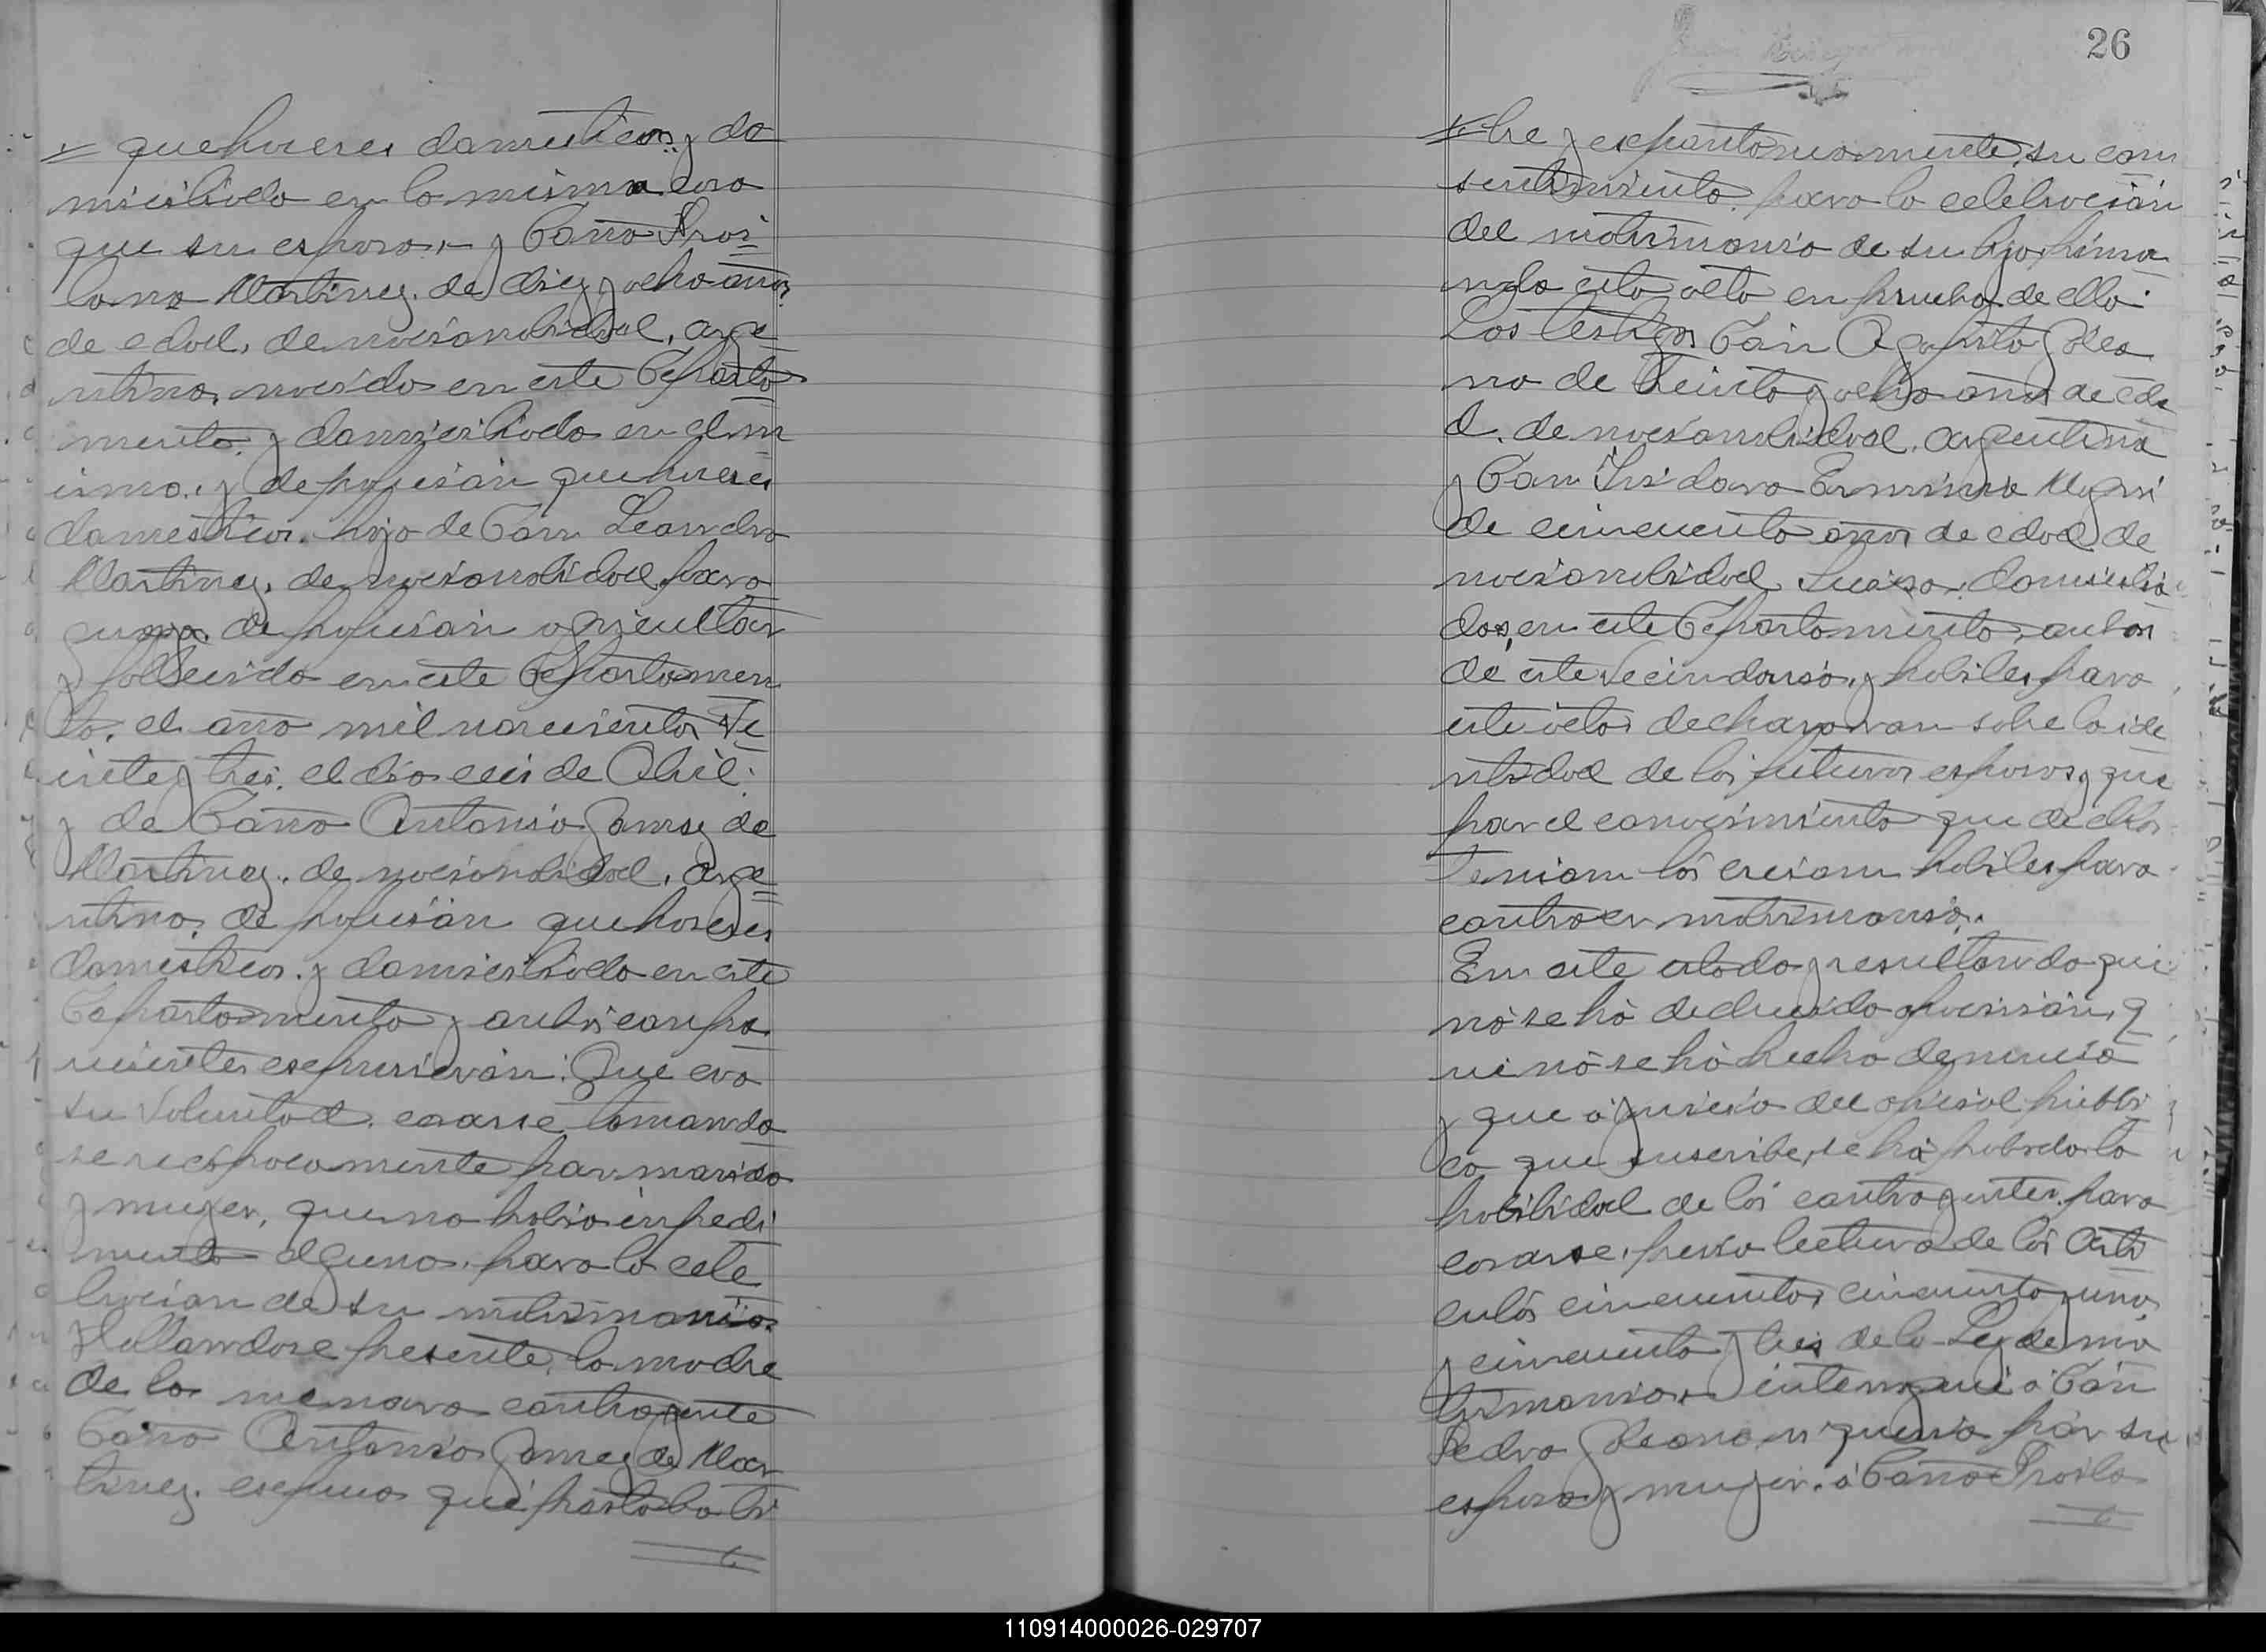 quehaceres domesticos, y do
miciliada en la misma casa
que su esposo.- y Doña Froi
lana Martinez. de diez y ocho años
de edad, de nacionalidad, arge
ntina, nacida en este Departa
mento, y domiciliada en el m
ismo., y de profesión quehaceres
domesticos. hija de Don Leandro
Martinez, de nacionalidad para
guaya. de profesión agricultor
y fallecido en este Departamen
to, el año mil novecientos Ve
inte y tres, el dia seis de Abril:
y de Doña Antonia Gomez de
Martinez. de nacionalidad, arge
ntina, de profesión quehaceres
domesticos. y domiciliada en este
Departamento y ambos compa
recientes expresaron: Que era
su voluntad, casarse tomando
se reciprocamente por marido
y muger, que no habia inpedi
mento alguno, para la cele
bracion de su matrimonio.
Hallandose presente, la madre
de la menora contragente
Doña Antonia Gomez de Mar
tinez. expuso que prestaba li
26
bre y expontoneamente, su con
sentimiento, para la celebración
del matrimonio de su hija, firma
ndo esta acta en prueba de ello.
Los testigos Don Agapito Galea
no de treinta y ocho años de eda
d. de nacionalidad, argentina
y Don Isidoro Erminio
de cincuenta años de edad de
nacionalidad Suiza, domicilia
dos, en este Departamento, ambos
de este Vecindario, y habiles para
este acto, declararon sobre la ide
ntidad de los futuros esposos, y que
por el conocimiento que de ellos
Tenian los creian habiles para
contraer matrimonio.
En este estado, y resultando que
no se ha deducido oposición, q
ue no se ha hecho denuncia
y que a juicio del oficial públi
co que suscribe, se ha probado la
habilidad de los contragentes. para
casarse, previa lectura de los Arti
culos cincuenta, cincuenta y uno,
y cincuenta y tres de la Ley de ma
trimonio,- interrogué a Don
Pedro Galeano, si queria por su
esposa y muger. a Doña Froila
110914000026-029707